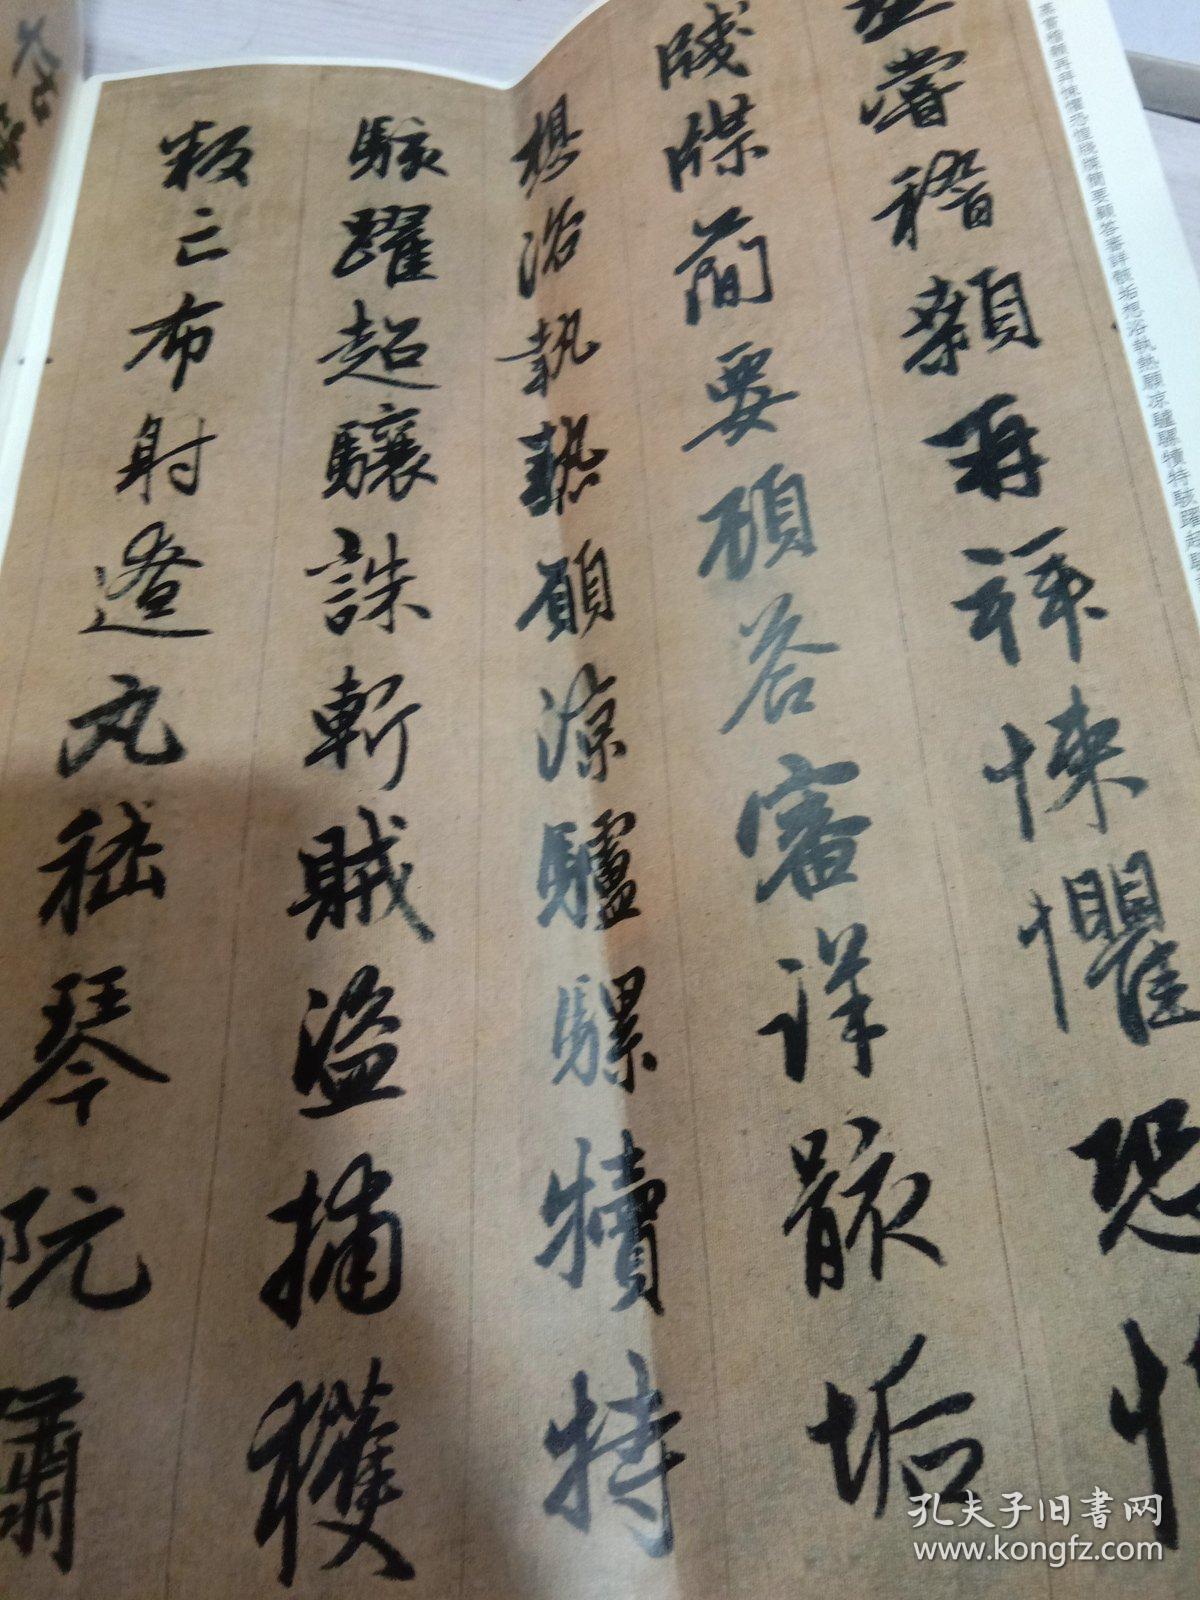 蒸嘗稽顙再拜悚懼恐惶牋牒簡要顧答審詳骸垢想浴執熱願凉驢騾犢特駭躍超驤
嘗稽顙再拜悚懼恐
牋牒簡要顧答審詳骸垢
想浴執熱願凉驢騾犢特
駭躍超驤誅斬賊盜捕獲
叛亡布射遼丸嵇琴阮嘯
孔夫子旧书网
www.kongfz.com